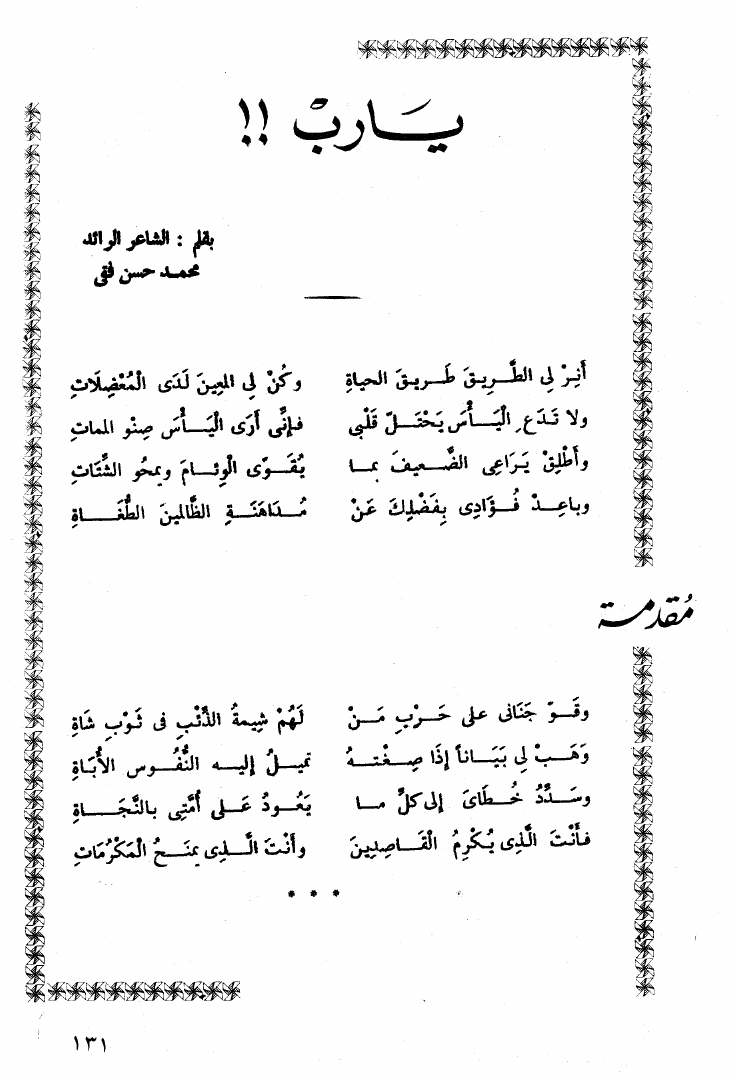 يـارب !!
بقلم : الشاعر الرائد
محمد حسن فقى
أَنِرْ لِى الطَّرِيقَ طَرِيقَ الحياةِ وكُنْ لِى المعينَ لَدَى الْمُعْضِلَاتِ
ولا تَدَعِ الْيَأْسَ يَحْتَلّ قَلْبِى فإِنِّى أَرَى الْيَأْسَ صِنْو المماتِ
وأَطْلِقْ يَرَاعِى الضَّعِيفَ بما يُقَوِّى الْوِئامَ ويمحُو الشَّتَاتِ
وباعِدْ فُؤَادِى بِفَضْلِكَ عَنْ مُدَاهَنَةِ الظَّالمينَ الطُّغَاةِ
مُقدمة
وقَوِّ جَنَانى على حَرْبِ مَنْ لَهُمْ شِيمةُ الذِّئْبِ فى ثَوْبِ شَاةِ
وَهَبْ لِى بَيَاناً إذَا صِغْتهُ تميلُ إليه النُّفُوس الأُبَاةِ
وسَدِّدْ خُطَاىَ إلى كلِّ ما يَعُودُ عَلى أُمَّتِى بالنَّجَاةِ
فأَنْتَ الَّذِى يُكْرِمُ القَاصِدِينَ وأَنْتَ الَّذِى يمنَحُ المَكْرُمَاتِ
* * *
١٣١